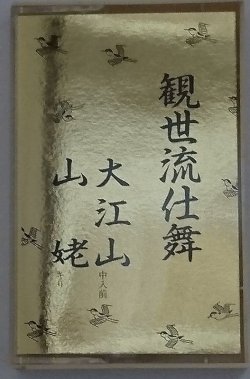 観世流仕舞
大江山 中入前
山姥 キリ